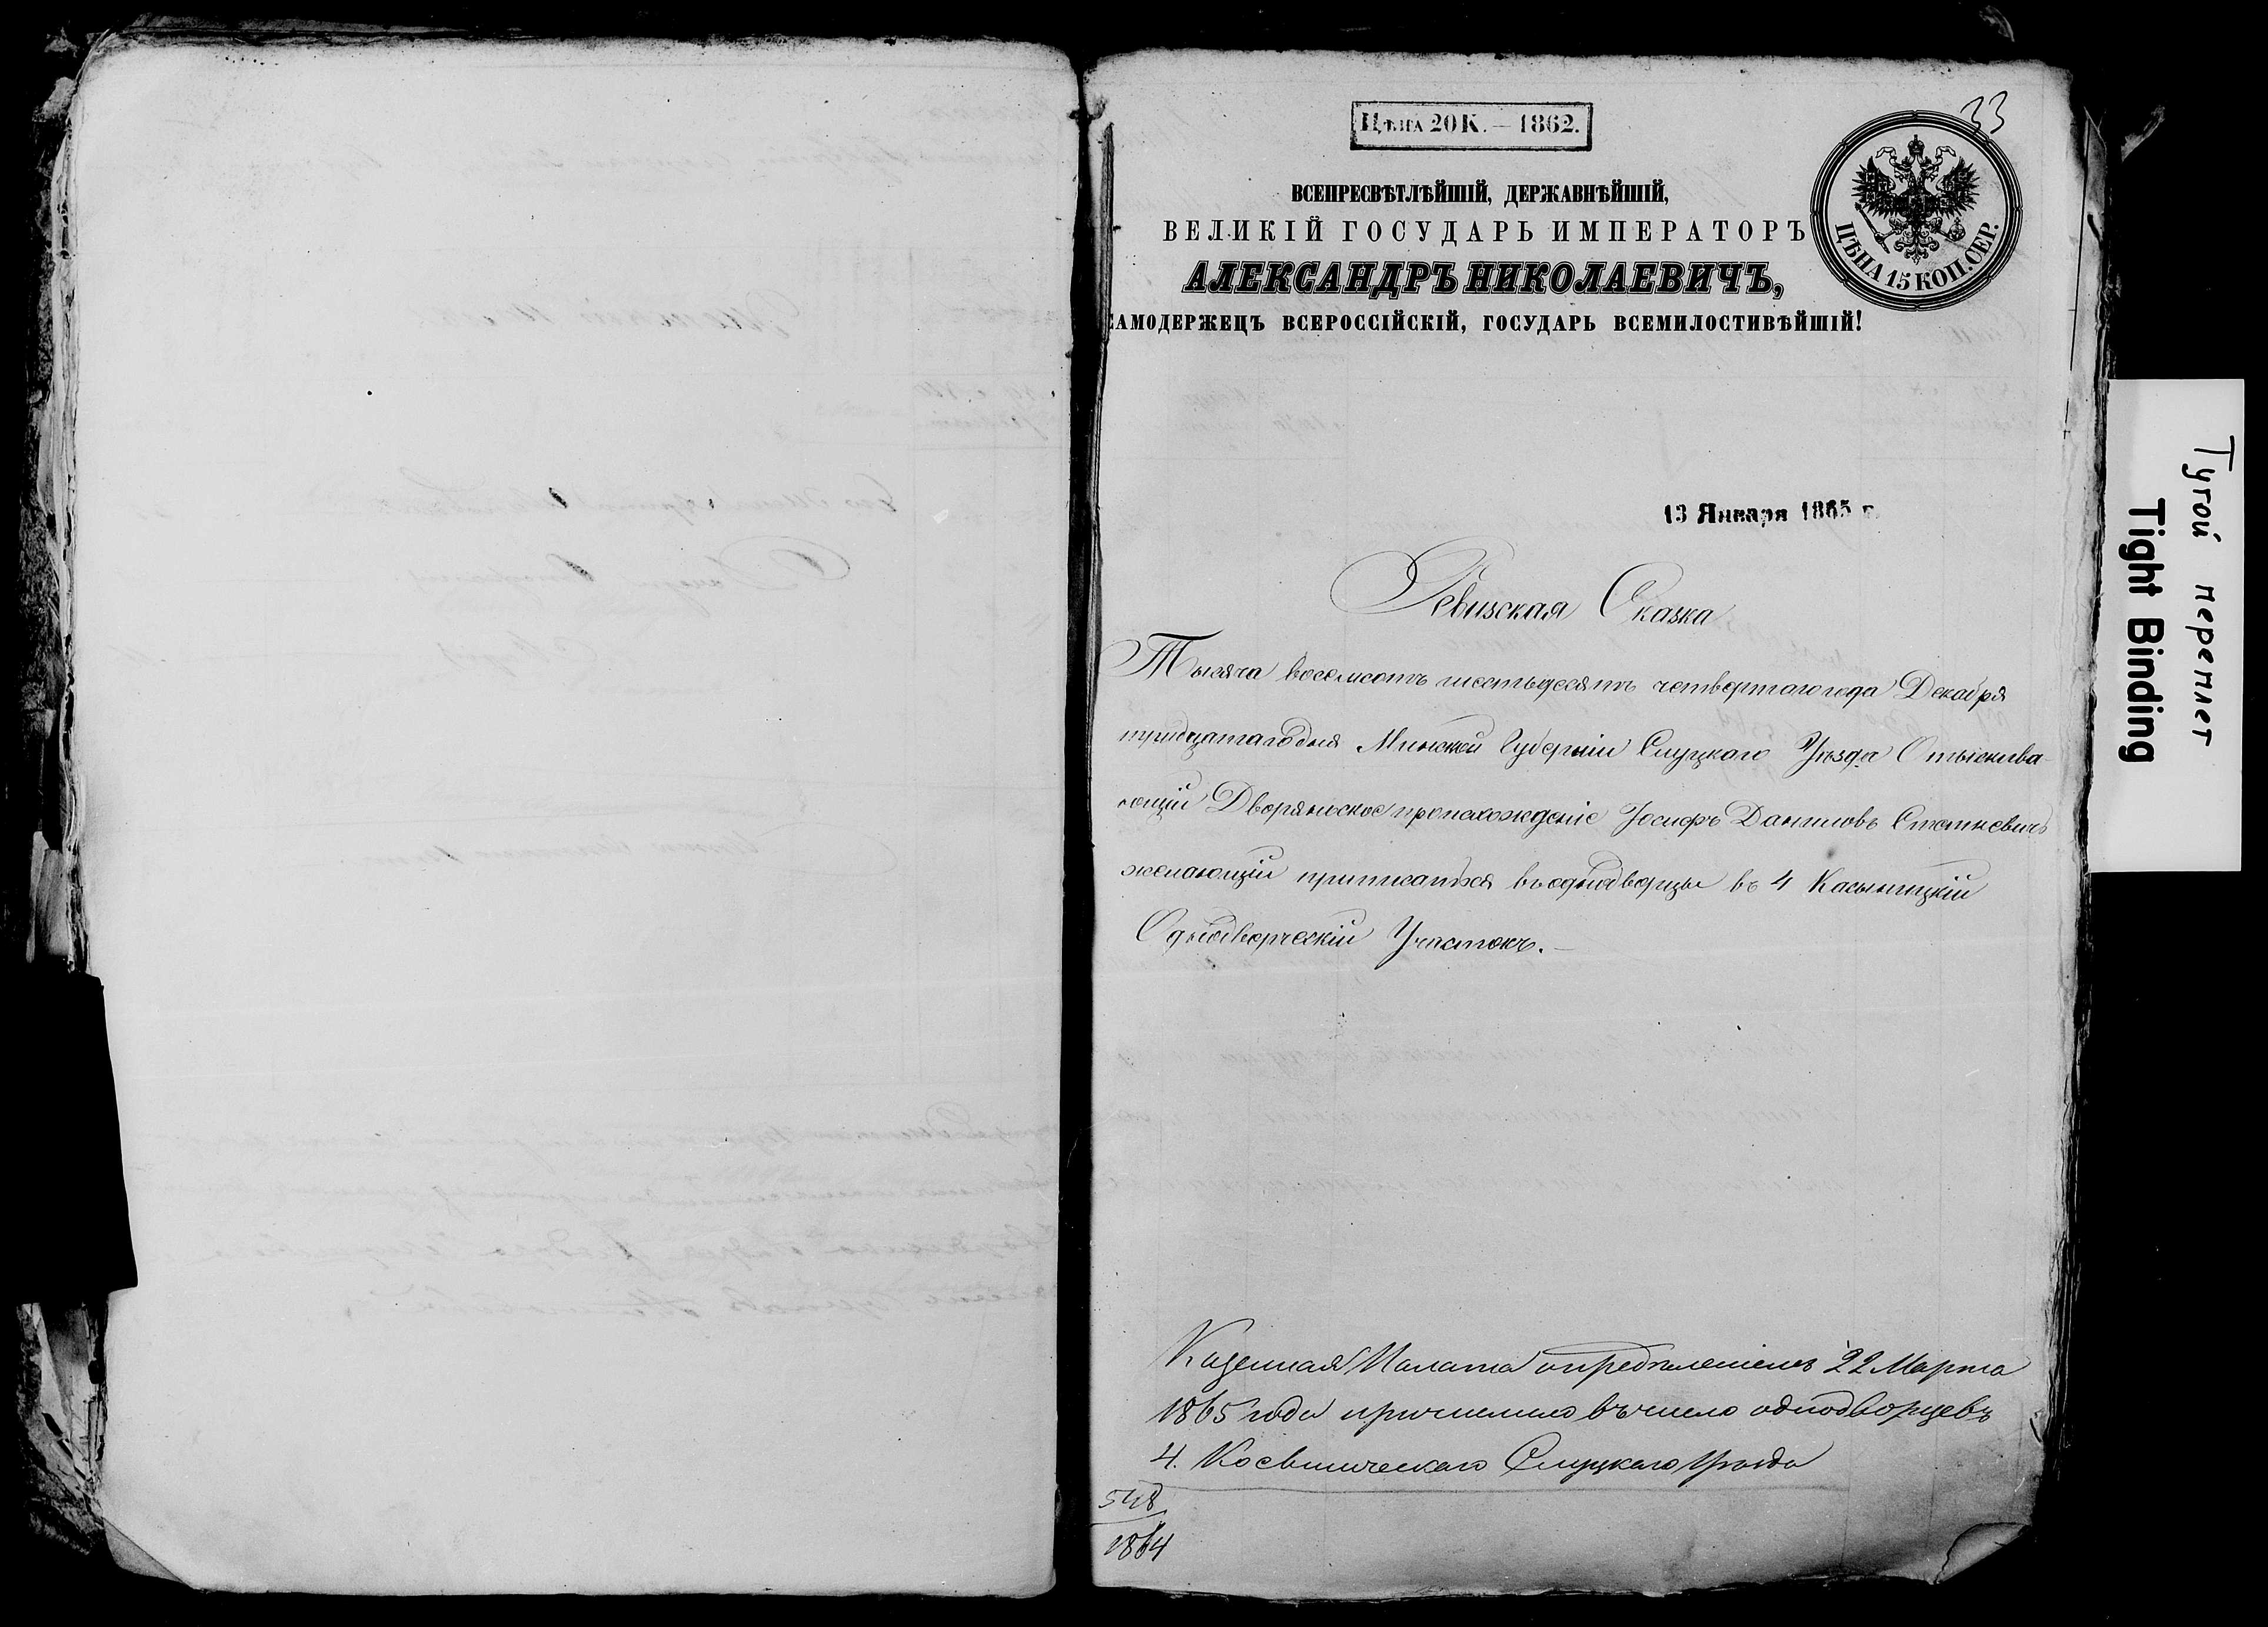 33
Цѣна 20 К. — 1862.
ВСЕПРЕСВѢТЛѢЙШІЙ, ДЕРЖАВНѢЙШІЙ,
ВЕЛИКІЙ ГОСУДАРЬ ИМПЕРАТОРЪ
АЛЕКСАНДРЪ НИКОЛАЕВИЧЪ,
САМОДЕРЖЕЦЪ ВСЕРОССІЙСКІЙ, ГОСУДАРЬ ВСЕМИЛОСТИВѢЙШІЙ!
ЦѢНА 15 КОП. СЕР.
13 Января 1865 г.
Ревизская Сказка
Тысяча восемсотъ шестьдесятъ четвертаго года Декабря
тридцатаго дня Минской Губерніи Слуцкаго Уѣзда Отыскива-
ющій Дворянское происхожденіе Іосифъ Даниловъ Статкевичъ
желающій приписатся въ однодворцы въ 4
Однодворческій Участокъ.—
Казенная Палата опредѣленіемъ 22 Марта
1865 года причислила въ число однодворцевъ
4. Слуцкаго уѣзда
548
1864
Тугой переплет
Tight Binding